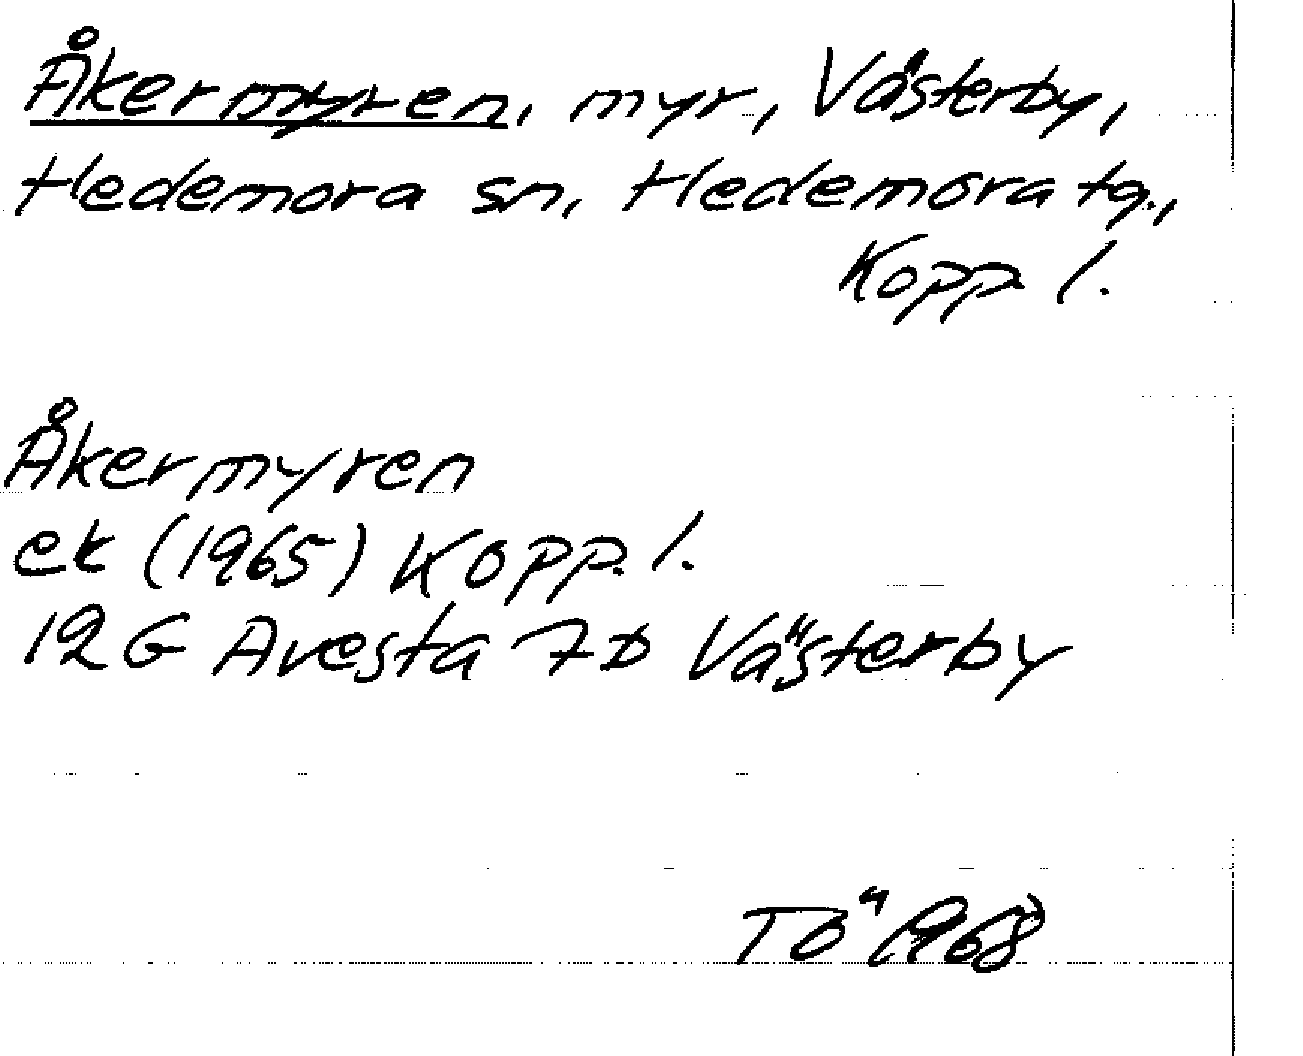 Åkermyren, myr, Västerby,
Hedemora sn, Hedemora tg.,
Kopp. l.
Åkermyren
ek (1965) Kopp. l.
12 G Avesta 7 D Västerby
TÖ 1968